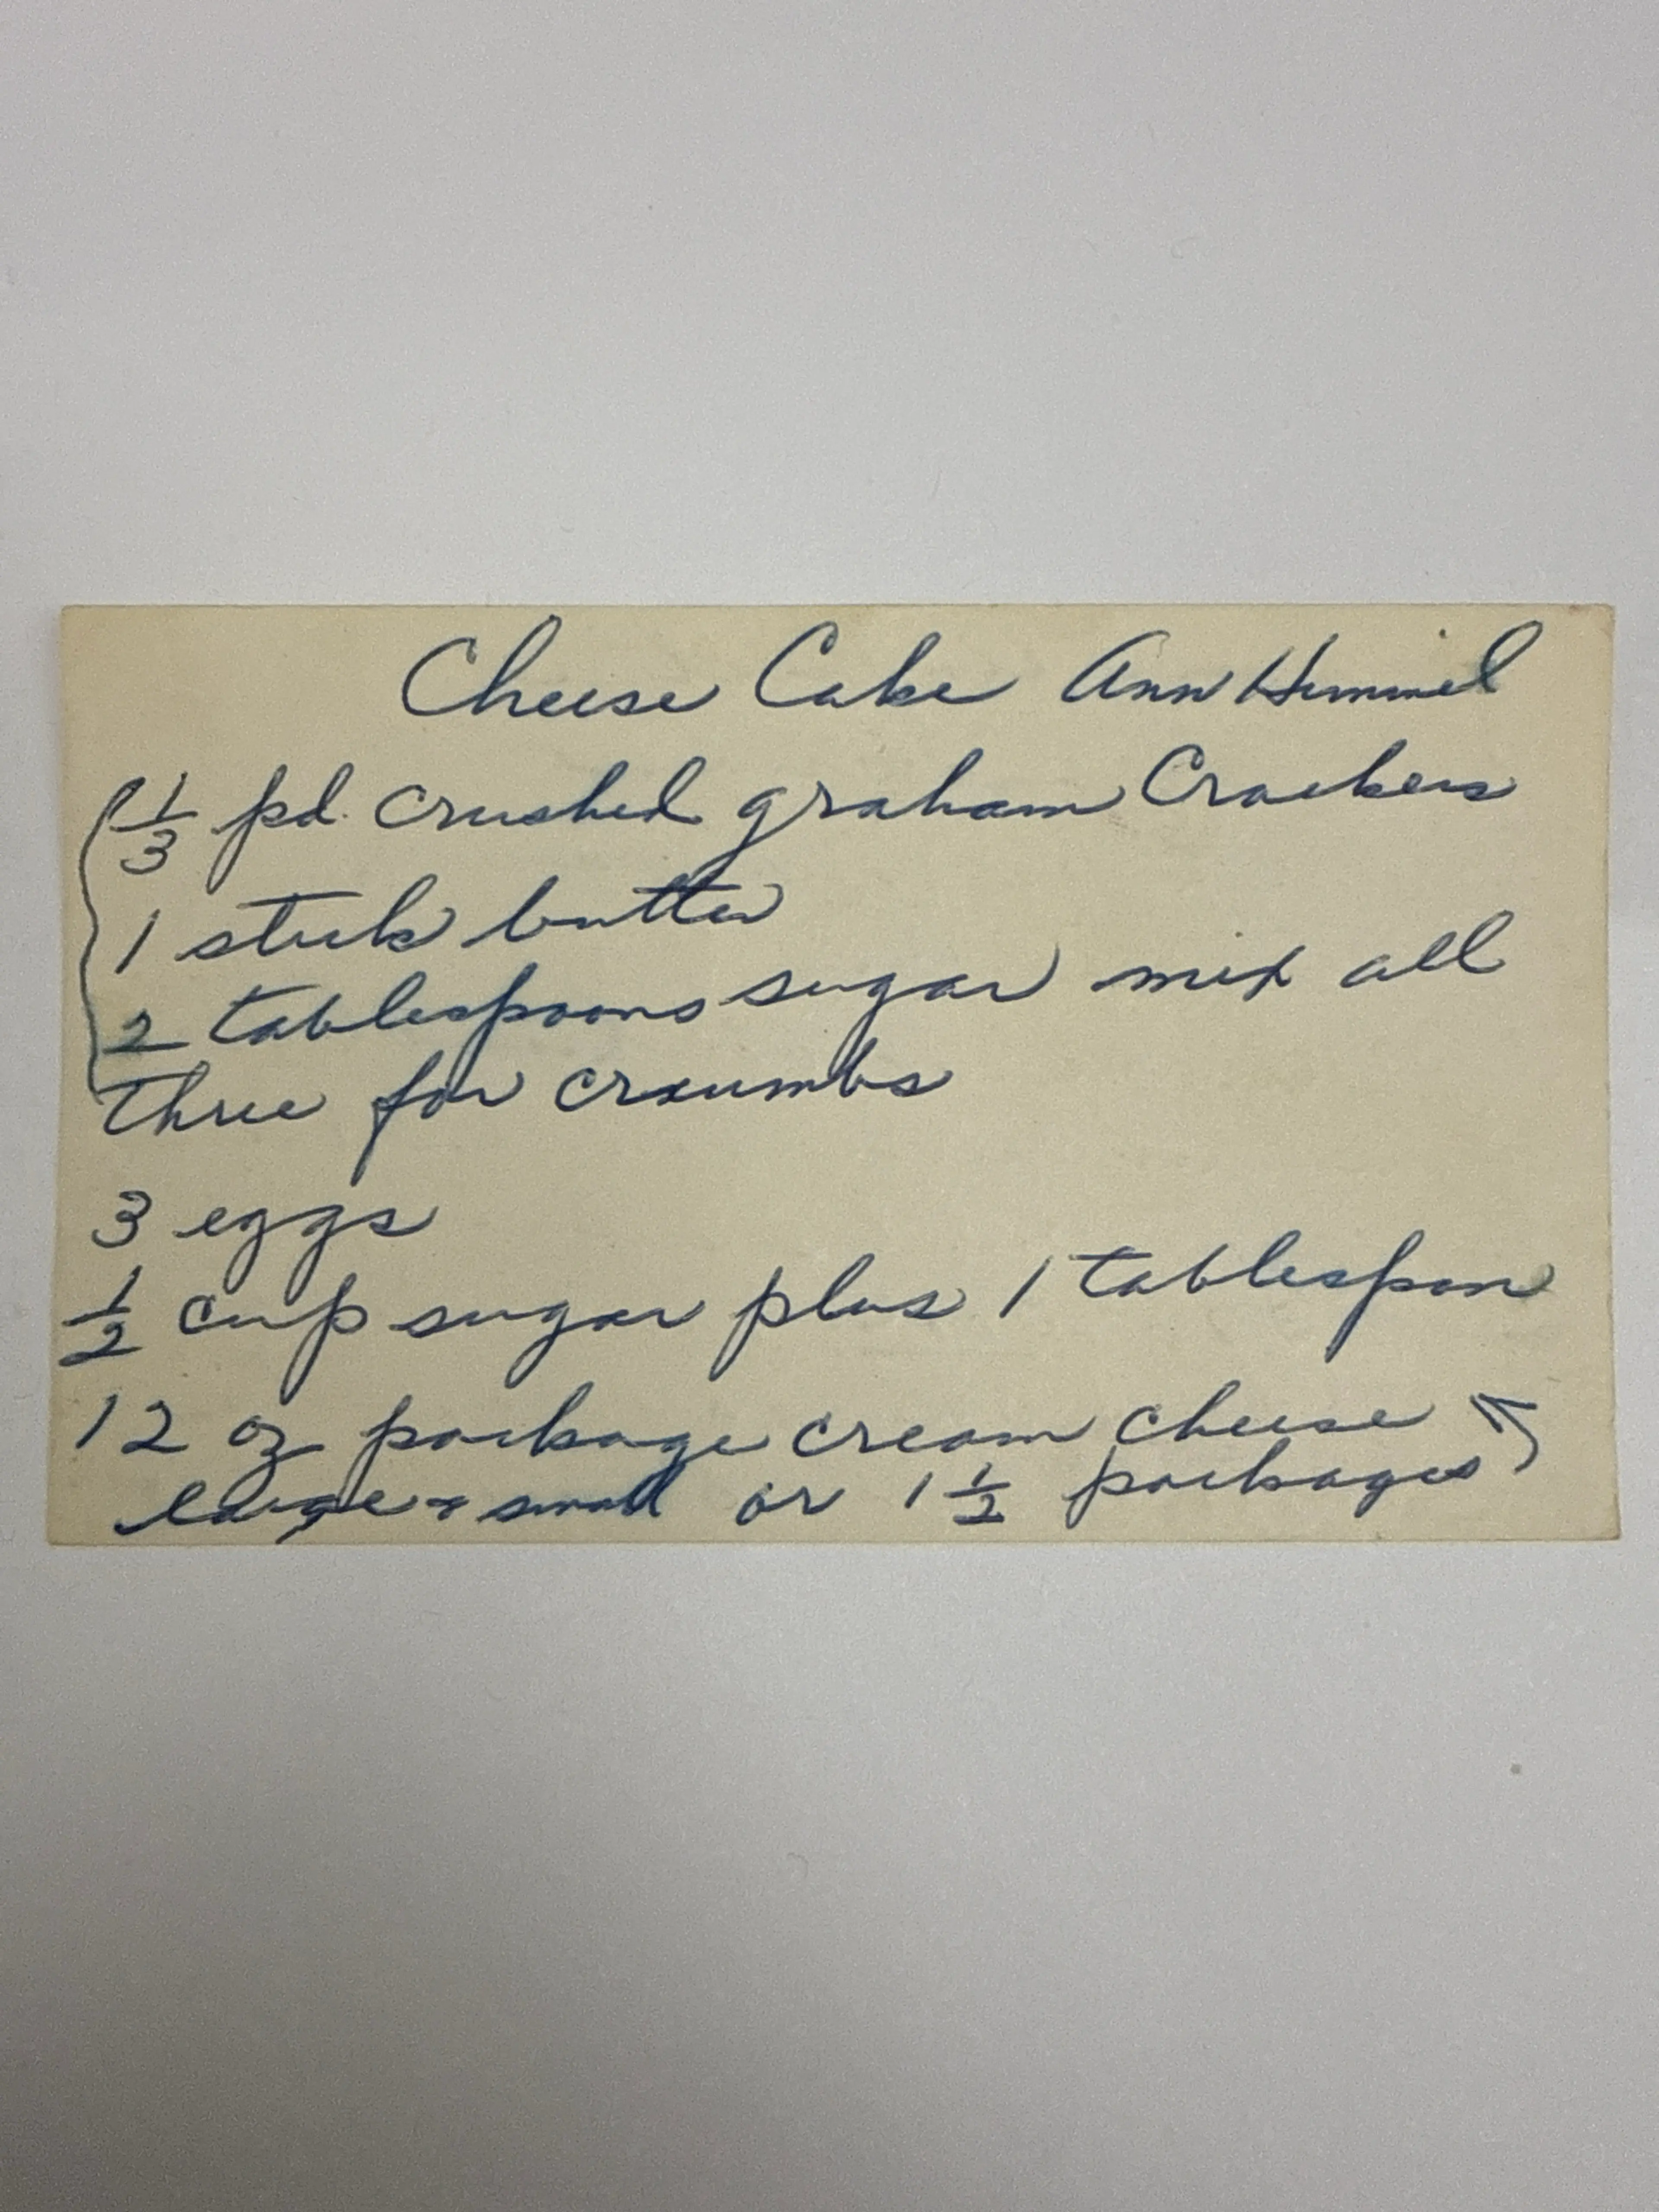 Cheese Cake Ann Himmel
1/3 pd. crushed graham Crackers
1 stick butter
2 tablespoons sugar mix all
three for croumbs
3 eggs
1/2 cup sugar plus 1 tablespon
12 oz package cream cheese
large + small or 1 1/2 packages